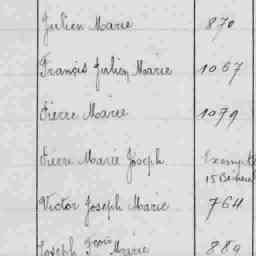 Julien Marie 870
François Julien Marie 1067
Pierre Marie 1079
Pierre Marie Joseph Exempté
15 Bis
Victor Joseph Marie 764
Joseph Frois Marie 889